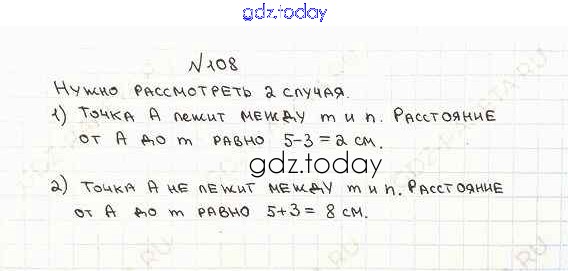 gdz.today
№108
Нужно рассмотреть 2 случая.
1) Точка А лежит между m и n. Расстояние
от А до m равно 5-3=2 см.
gdz.today
2) Точка А не лежит между m и n. Расстояние
от А до m равно 5+3= 8 см.